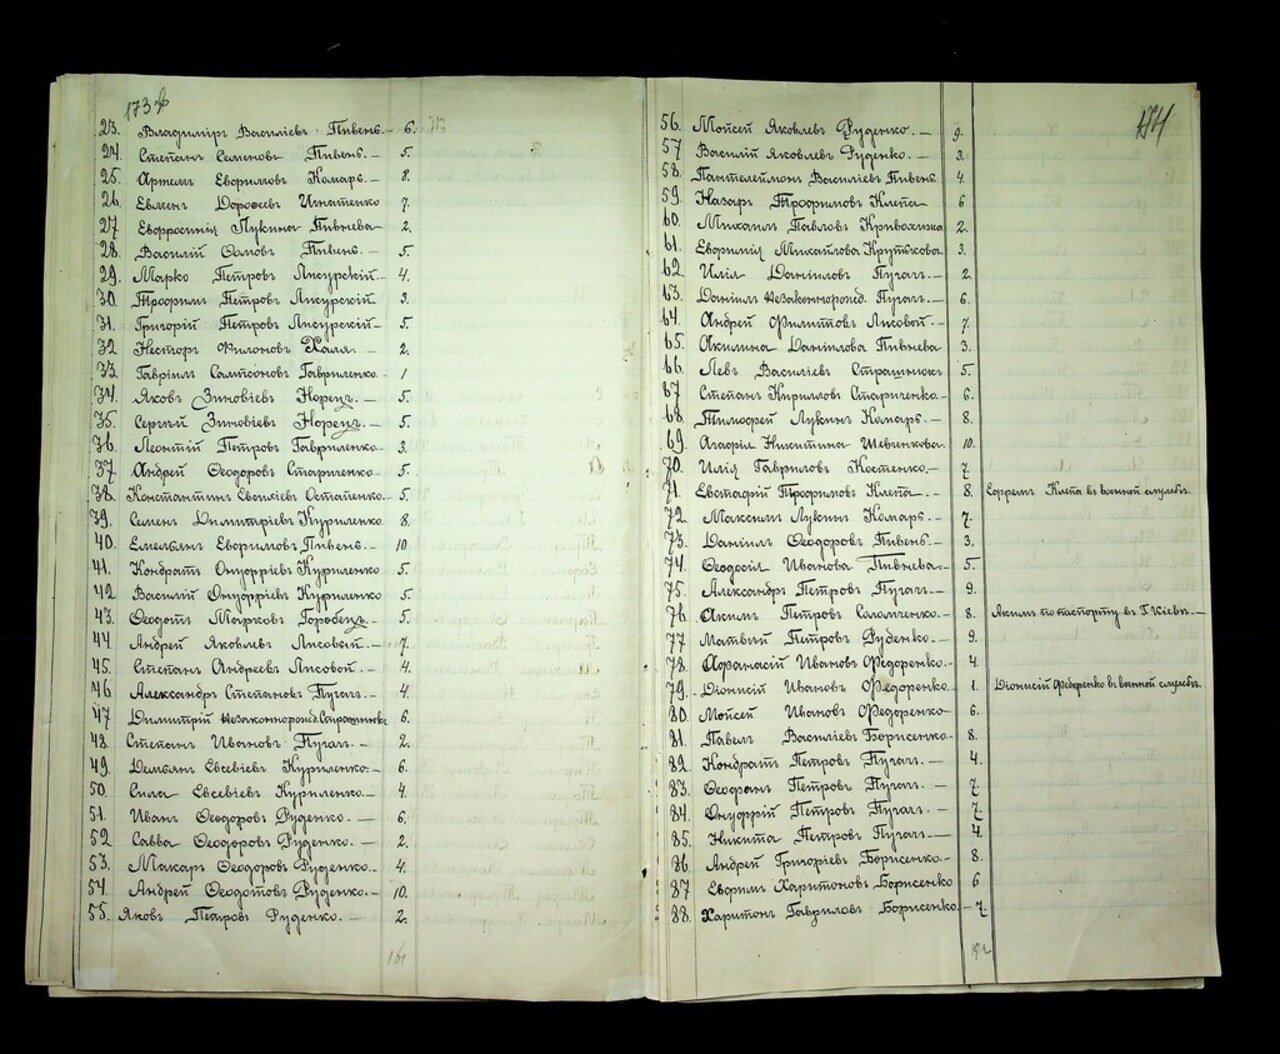 173
23. Владиміръ Василіевъ Пивень. 6.
24. Степанъ Семеновъ Пивень. 5.
25. Артемъ Евфимовъ Комаръ. 8.
26. Евменъ Дорофеевъ Игнатенко 7.
27 Евфросинія Лукина Пивнева 2.
28. Василій Пивень. 5.
29. Марко Петровъ Лисурскій. 4.
30. Трофимъ Петровъ Лисурскій 3.
31. Григорій Петровъ Лисурскій 5.
32 Несторъ Филоновъ Халя. 2.
33 Гавріилъ Сампсоновъ Гавриленко 1
34. Яковъ Зиновіевъ Норецъ. 5.
35. Сергѣй Зиновіевъ Норецъ. 5.
36. Леонтій Петровъ Гавриленко 3.
37 Андрей Ѳеодоровъ Стариченко 5.
38. Константинъ Остапенко. 5.
39. Семенъ Димитріевъ Куриленко 8.
40. Емельянъ Евфимовъ Пивень. 10
41. Кондратъ Онуфріевъ Куриленко 5.
42 Василій Онуфріевъ Куриленко 5.
43. Ѳеодотъ Марковъ Горобецъ. 5.
44 Андрей Яковлевъ Лисовой. 7.
45. Степанъ Андреевъ Лисовой. 4.
46 Александръ Степановъ Пугачъ. 4.
47 Димитрій незаконнорожд. Страшнюкъ 6.
48. Степанъ Ивановъ Пугачъ. 2.
49. Демьянъ Евсевіевъ Куриленко. 6.
50. Сила Евсевіевъ Куриленко. 4.
51. Иванъ Ѳеодоровъ Руденко. 6.
52 Савва Ѳеодоровъ Руденко. 2.
53. Макаръ Ѳеодоровъ Руденко. 4.
54. Андрей Ѳеодотовъ Руденко. 10.
55. Яковъ Петровъ Руденко. 2.
161
56. Мойсей Яковлевъ Руденко. 9.
57 Василій Яковлевъ Руденко. 3.
58. Пантелеймонъ Василіевъ Пивень 4.
59. Назаръ Трофимовъ Клепа 6
60. Михаилъ Павловъ Кривохижа 2.
61. Евфимія Михайлова 3.
62 Илія Даніиловъ Пугачъ. 2
63. Даніилъ незаконнорожд. Пугачъ. 6.
64. Андрей Филиповъ Лисовой. 7.
65. Акилина Даніилова Пивнева 3.
66. Левъ Василіевъ Страшнюкъ 5.
67 Степанъ Кирилловъ Стариченко. 6.
68. Тимофей Лукинъ Комаръ. 8.
69. Агафія Никитина Шевченкова. 10.
70. Илія Гавриловъ Костенко. 7.
71. Евстафій Трофимовъ Клепа. 8. Ефремъ Клепа въ военной службѣ.
72. Максимъ Лукинъ Комаръ. 7.
73. Даніилъ Ѳеодоровъ Пивень. 3.
74. Ѳеодосія Иванова Пивнева. 5.
75. Александръ Петровъ Пугачъ. 9.
76. Акимъ Петровъ Саломченко. 8. Акимъ по паспорту въ Г. Кіевѣ.
77 Матвѣй Петровъ Руденко. 9.
78. Афанасій Ивановъ Федоренко. 4.
79. Діонисій Ивановъ Федоренко. 1. Діонисій Федоренко въ военной службѣ.
80. Мойсей Ивановъ Федоренко 6.
81. Павелъ Василіевъ Борисенко. 8.
82. Кондратъ Петровъ Пугачъ. 4.
83. Ѳеофанъ Петровъ Пугачъ. 7.
84. Онуфрій Петровъ Пугачъ. 7.
85. Никита Петровъ Пугачъ. 4.
86. Андрей Григоріевъ Борисенко. 8.
87 Евфимъ Харитоновъ Борисенко 6
88. Харитонъ Гавриловъ Борисенко. 7.